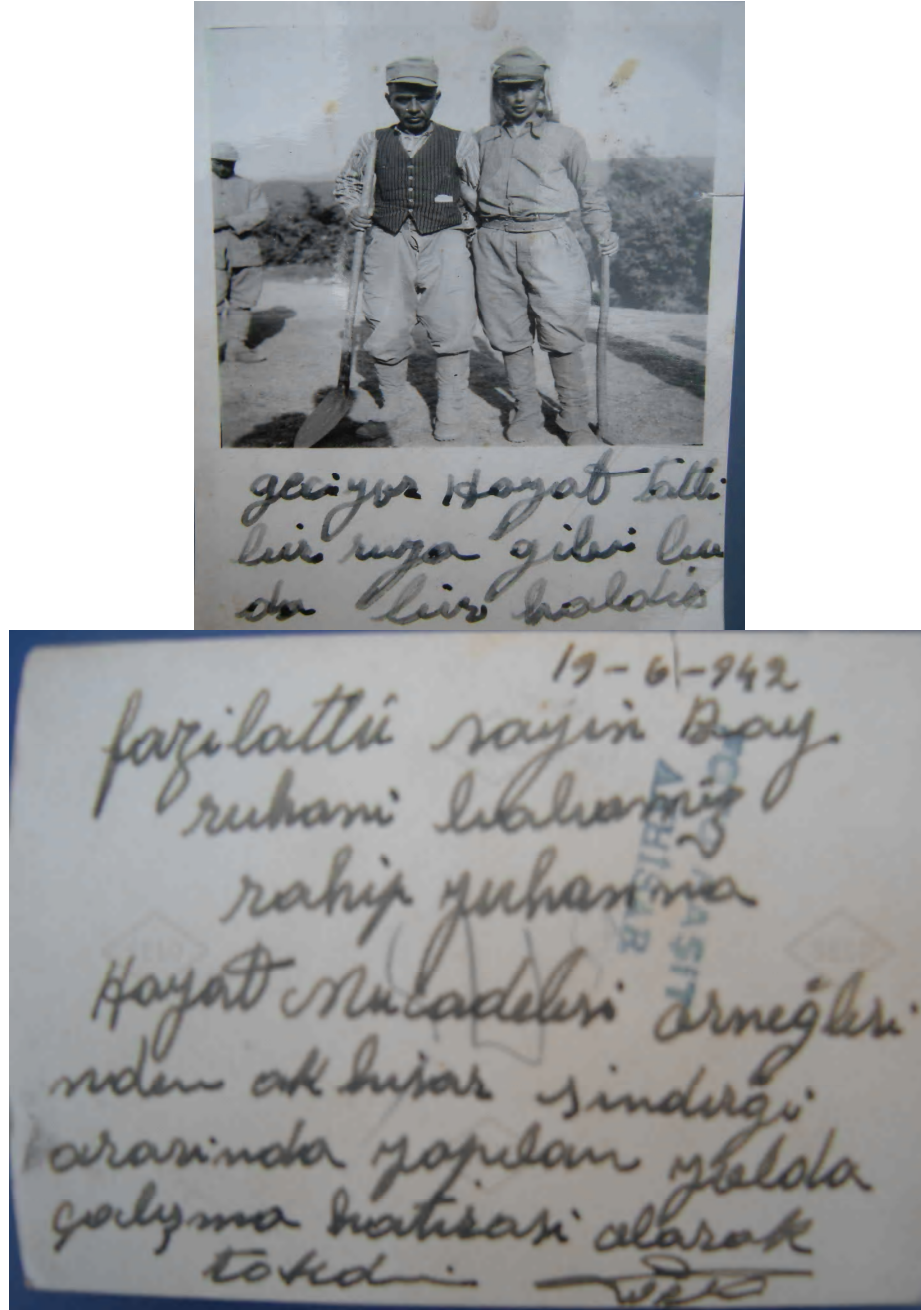 geciyor Hayat tatli
bir ruya gibi bu
da bir haldir
19-6-942
fazilatlü sayin Bay
ruhani babamiz
rahip yuhanna
Hayat Mucadelesi örneğleri
nden ak hisar sindirği
arasinda yapilan yolda
çalışma hatirasi olarak